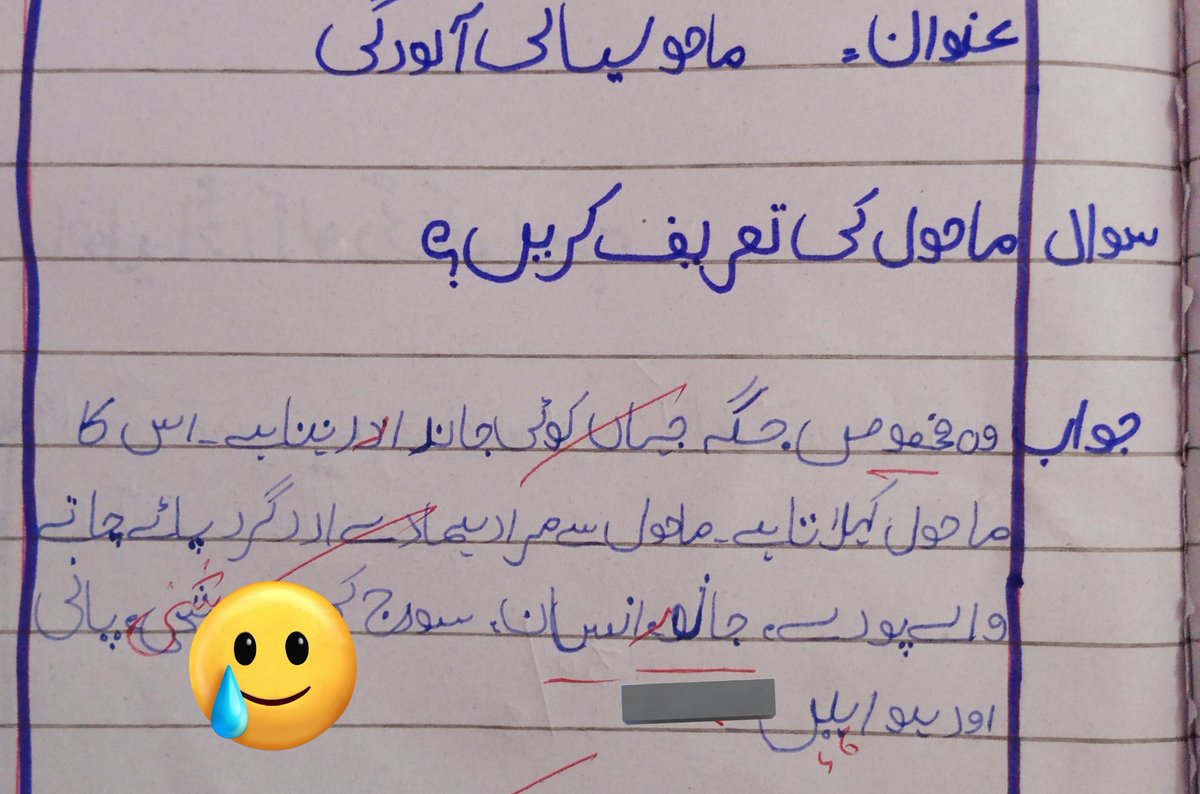 عنوان: ماحولیاتی آلودگی
سوال ماحول کی تعریف کریں؟
جواب وہ مخصوص جگہ جہاں کوئی جاندار رہتا ہے۔ اس کا
ماحول کہلاتا ہے۔ ماحول سے مراد ہمارے اردگرد پائے جانے
والے پودے، جانور، انسان، سورج کی روشنی، پانی
اور ہوا ہیں